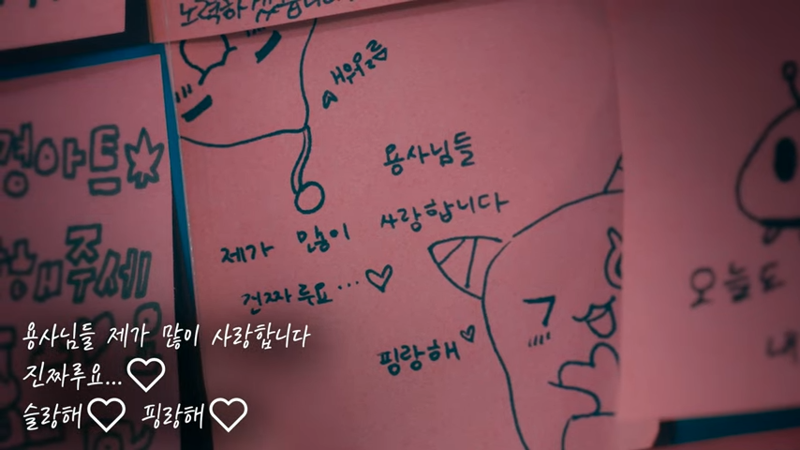 노력하겠습니다
용사님들
제가 많이 사랑합니다
진짜루요...♡
핑랑해♡
해주세
오늘도
내
용사님들 제가 많이 사랑합니다
진짜루요...♡
슬랑해♡ 핑랑해♡